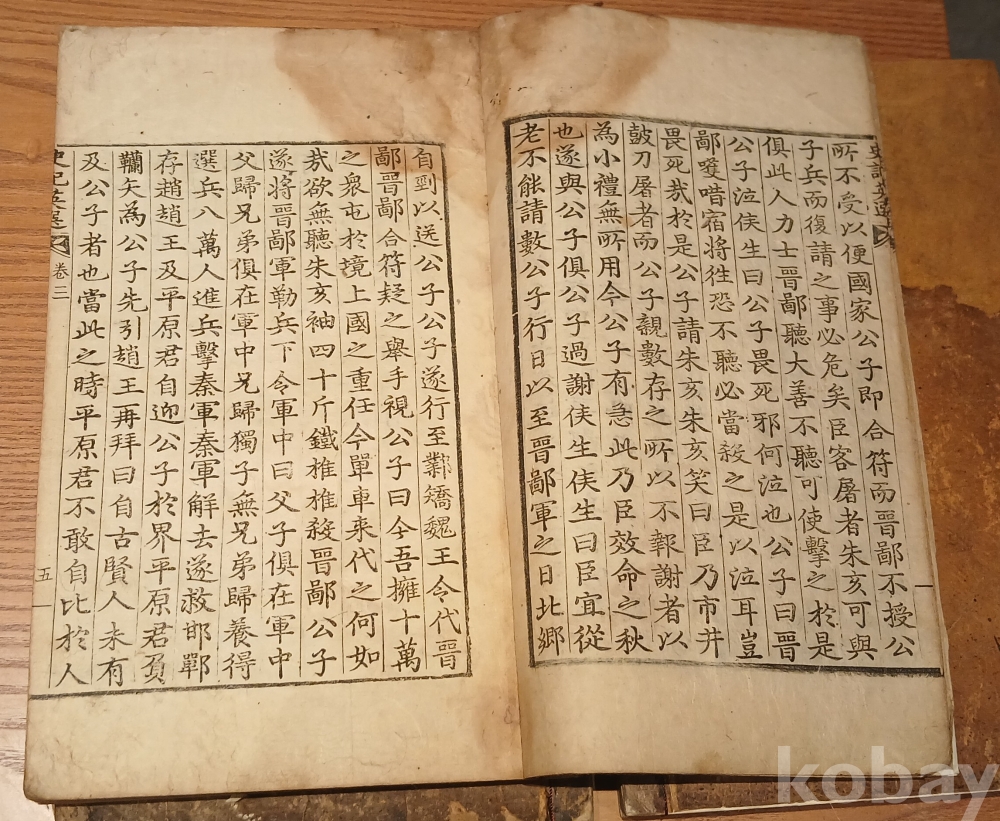 史記英選
所不受以便國家公子即合符而晉鄙不授公
子兵而復請之事必危矣臣客屠者朱亥可與
俱此人力士晉鄙聽大善不聽可使擊之於是
公子泣侯生曰公子畏死邪何泣也公子曰晉
鄙嚄唶宿將徃恐不聽必當殺之是以泣耳豈
畏死㦲於是公子請朱亥朱亥笑曰臣乃市井
鼓刀屠者而公子親數存之所以不報謝者以
為小禮無所用今公子有急此乃臣效命之秋
也遂與公子俱公子過謝侯生侯生曰臣宜從
老不能請數公子行日以至晉鄙軍之日北鄉
自剄以送公子公子遂行至鄴矯魏王令代晉
鄙晉鄙合符疑之舉手視公子曰今吾擁十萬
之衆屯於境上國之重任今單車来代之何如
㦲欲無聽朱亥袖四十斤鐵椎椎殺晉鄙公子
遂將晉鄙軍勒兵下令軍中曰父子俱在軍中
父歸兄弟俱在軍中兄歸獨子無兄弟歸養得
選兵八萬人進兵擊秦軍秦軍解去遂救邯鄲
存趙趙王及平原君自迎公子於界平原君負
韊矢為公子先引趙王再拜曰自古賢人未有
及公子者也當此之時平原君不敢自比於人
史記英選 卷二 五
kobay